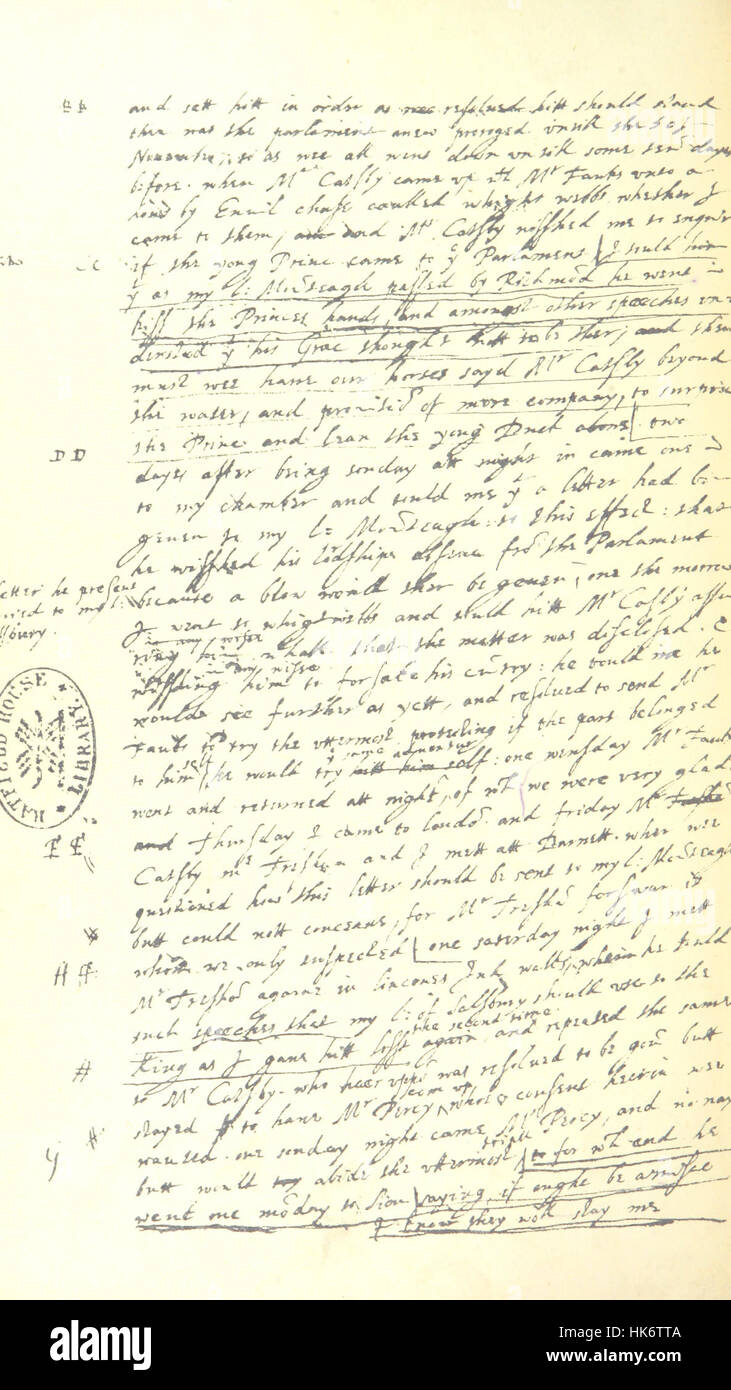 and sett hitt in order as resolued hitt should stand
then was the parliament anew proroged vntill the 5 of
Nouember, so as wee all went down vntill some ten days
before. when Mr Catsby came vp wth Mr Fauks vnto a
by Enuil chase caulled whight webbs whether I
came to them, and Mr Catsby wisshed me to enquir
if the yong Prince came to ye Parlament I tould him
yt as my l: Mounteagle passed by Richmond he went
kiss the Princes hands, and amongst other speeches
yt his Grace thought nott to be ther, and then
must wee haue our horses sayd Mr Catsby beyond
the water, and prouision of more company, to surprise
the Prince and leau the yong Duck alone two
DD
days after being sonday att night in came one
to my chamber and tould me yt a letter had been
geuen to my l: Mounteagle to this effect: that
he wisshed his lordships absenc from the Parlament
because a blow would ther be geuen, one the morrow
letter he presently
caried to my l:
Salsbury.
I went to whightwebbs and tould hitt Mr Catsby
in any wise
that the matter was disclosed. &
wisshing him to forsake his cuntry: he tould me he
would see further as yett, and resolued to send Mr
Fauks to try the vttermost protesting if the part belonged
to him self he would try ye same aduenture: one wensday Mr Fauks
went and returned att night, of wh we were very glad
EE
and Thursday I came to London and friday Mr
Catsby Mr Tresham and I mett att Barnett. wher wee
questioned how this letter should be sent to my l: Mounteagle
butt could nott conceaue, for Mr Tresham forsware it
whom we only suspected one saterday night I mett
Mr Tresham againe in lincones Ink walks, wherin he tould
such speeches that my l: of Salsbury should vse to the
King as I gaue hitt lost the second time, and repeated the same
to Mr Catsby. who was resolued to be gon butt
stayed to haue Mr Percy com vp whose consent herein wee
waunted. one sonday night came Mr Percy, and no nay
butt would abide the vttermost triall
went one monday to Sion saying, if oughte be amisse
I know they will stay me
HATFIELD HOUSE LIBRARY
alamy
Image ID: HK6TTA
www.alamy.com